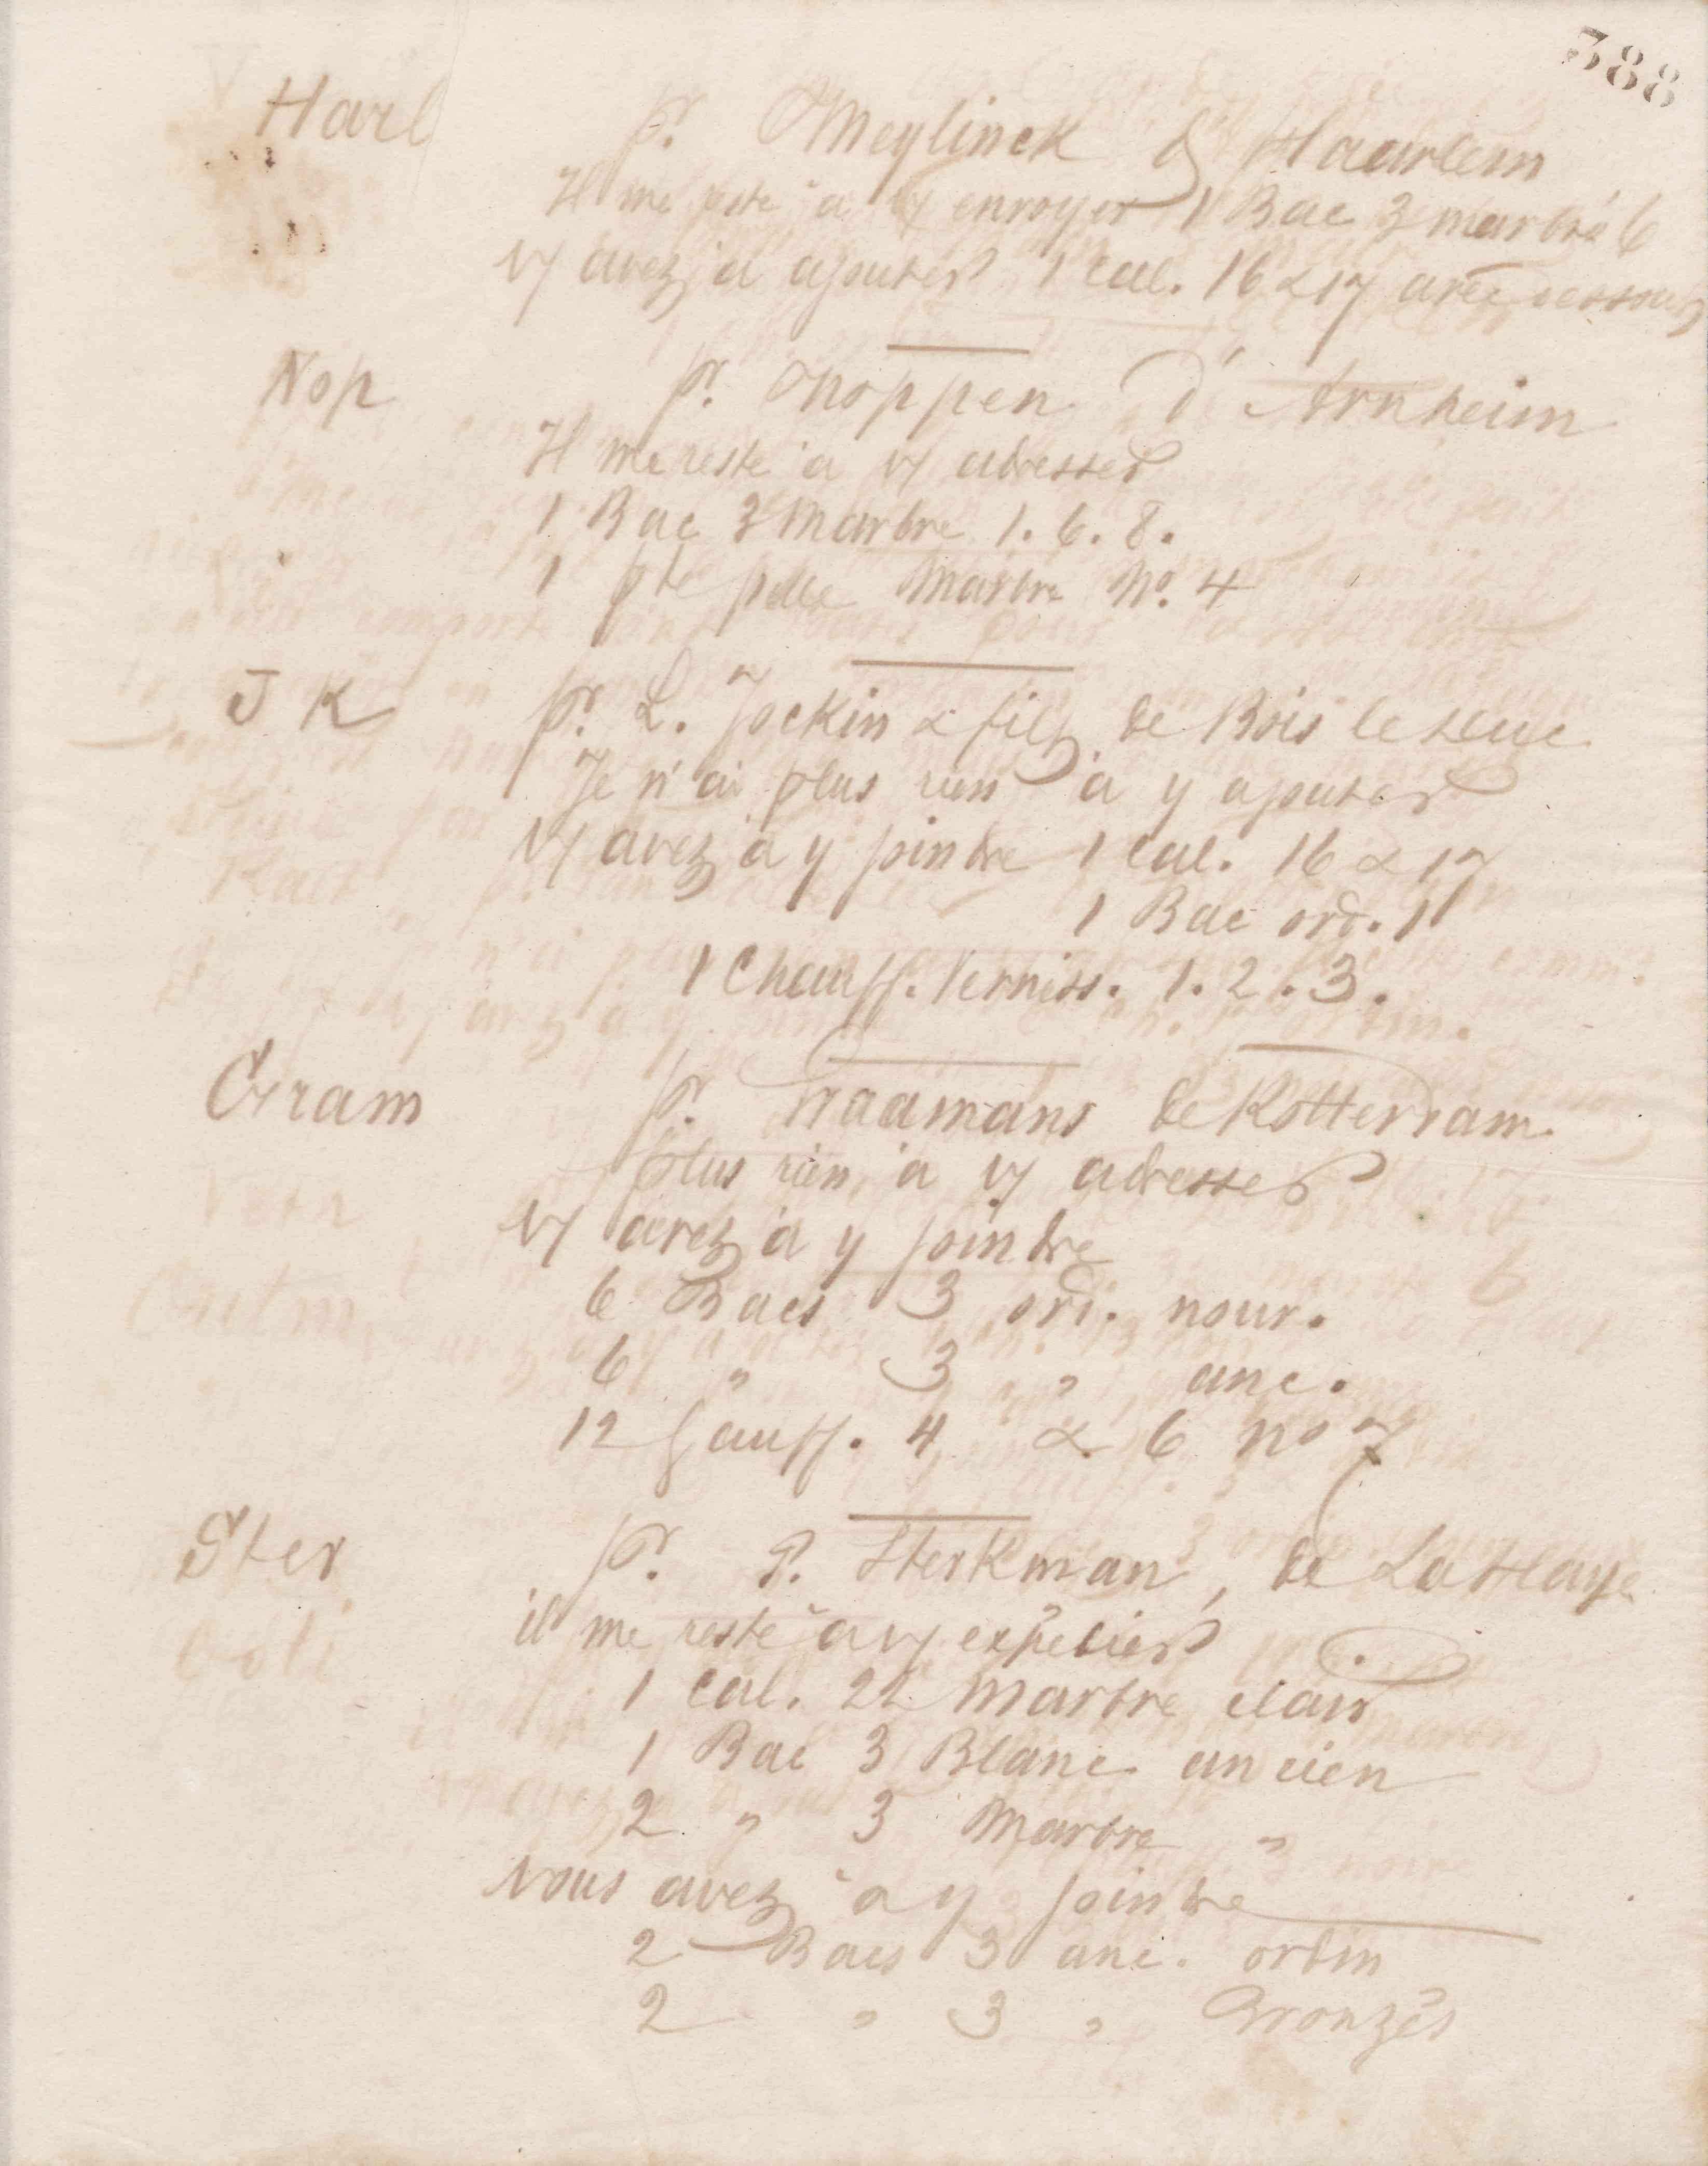 388
Harl
pr. Meylinck de Haarlem
Il me reste à vs envoyer 1 Bac 3 marbré 6
vs avez à ajouter 1 Cal. 16 & 17 avec dessous
Nop
pr. Noppen d'Arnheim
Il me reste à vs adresser
1 Bac 3 Marbre 1. 6. 8.
1 pte pelle Marbre No. 4
J K
pr. L. Jockin & fils de Bois le Duc
Je n'ai plus rien à y ajouter
vs avez à y joindre 1 Cal. 16 & 17
1 Bac ord. 1
1 Chauff. Verniss. 1. 2. 3.
Gram
pr. Traamans de Rotterdam
plus rien à vs adresser
vs avez à y joindre
6 Bacs 3 ord. nouv.
6 " 3 " anc.
12 Gauff. 4 & 6 no 7
Ster
pr. P. Sterkman, de La Haye
il me reste à vs expédier
1 Cal. 22 marbre clair
1 Bac 3 Blanc ancien
2 " 3 Marbre "
Vous avez à y joindre
2 Bacs 3 anc. ordin
2 " 3 " Bronzés